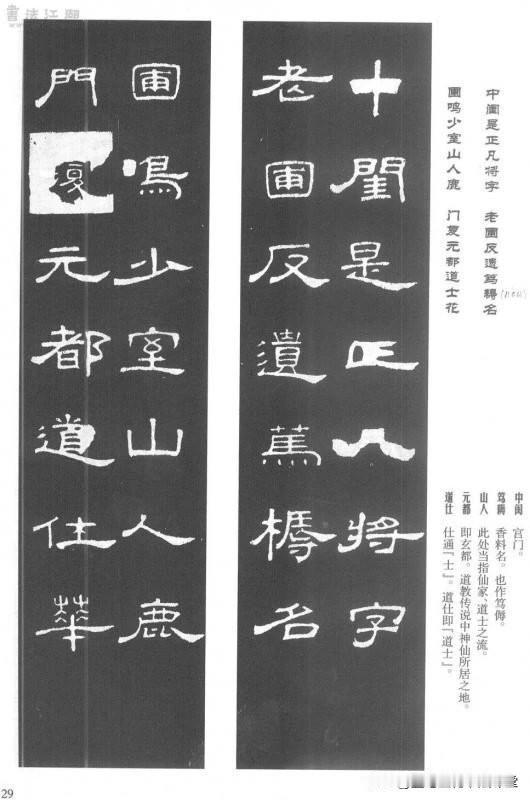 書法江湖
中闺是正凡将字 老圃反遗笃耨名
(nou)
圃鸣少室山人鹿 门夏元都道士花
中闺 宫门。
笃耨 香料名。也作笃傉。
山人 此处当指仙家、道士之流。
元都 即玄都。道教传说中神仙所居之地。
道仕 仕通「士」。道仕即「道士」。
十閨是正 將字
老圃反遺篤槈名
圃鳴少室山人鹿
門夏元都道仕華
29